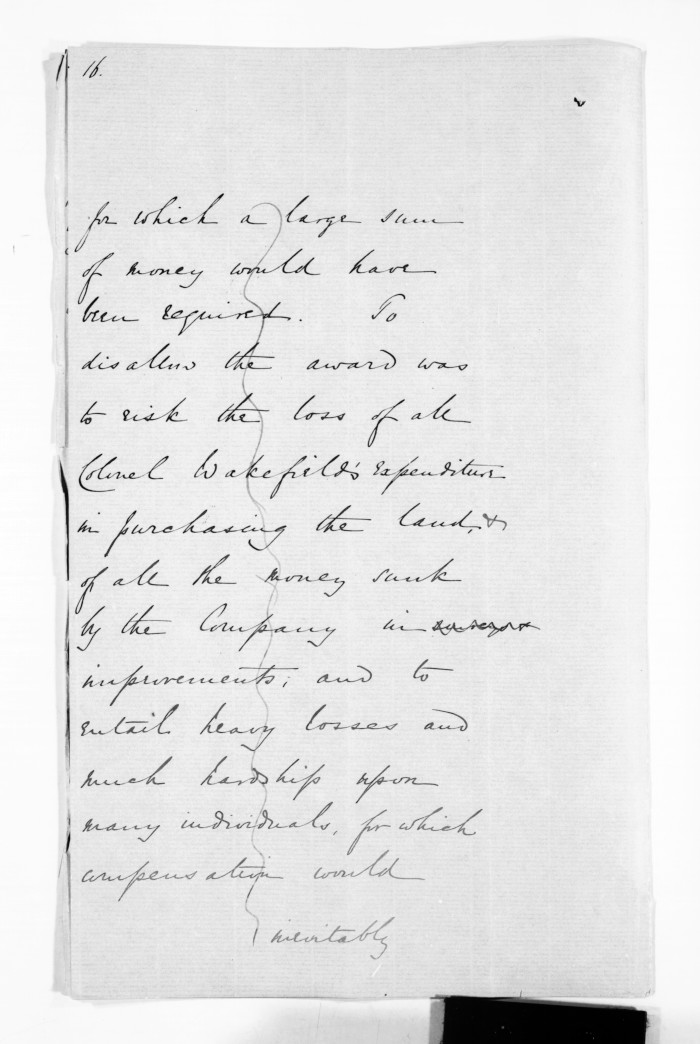 16.
for which a large sum
of money would have
been required. To
disallow the award was
to risk the loss of all
Colonel Wakefield's expenditure
in purchasing the land, &
of all the money sunk
by the Company in
improvements; and to
entail heavy losses and
much hardship upon
many individuals, for which
compensation would
inevitably